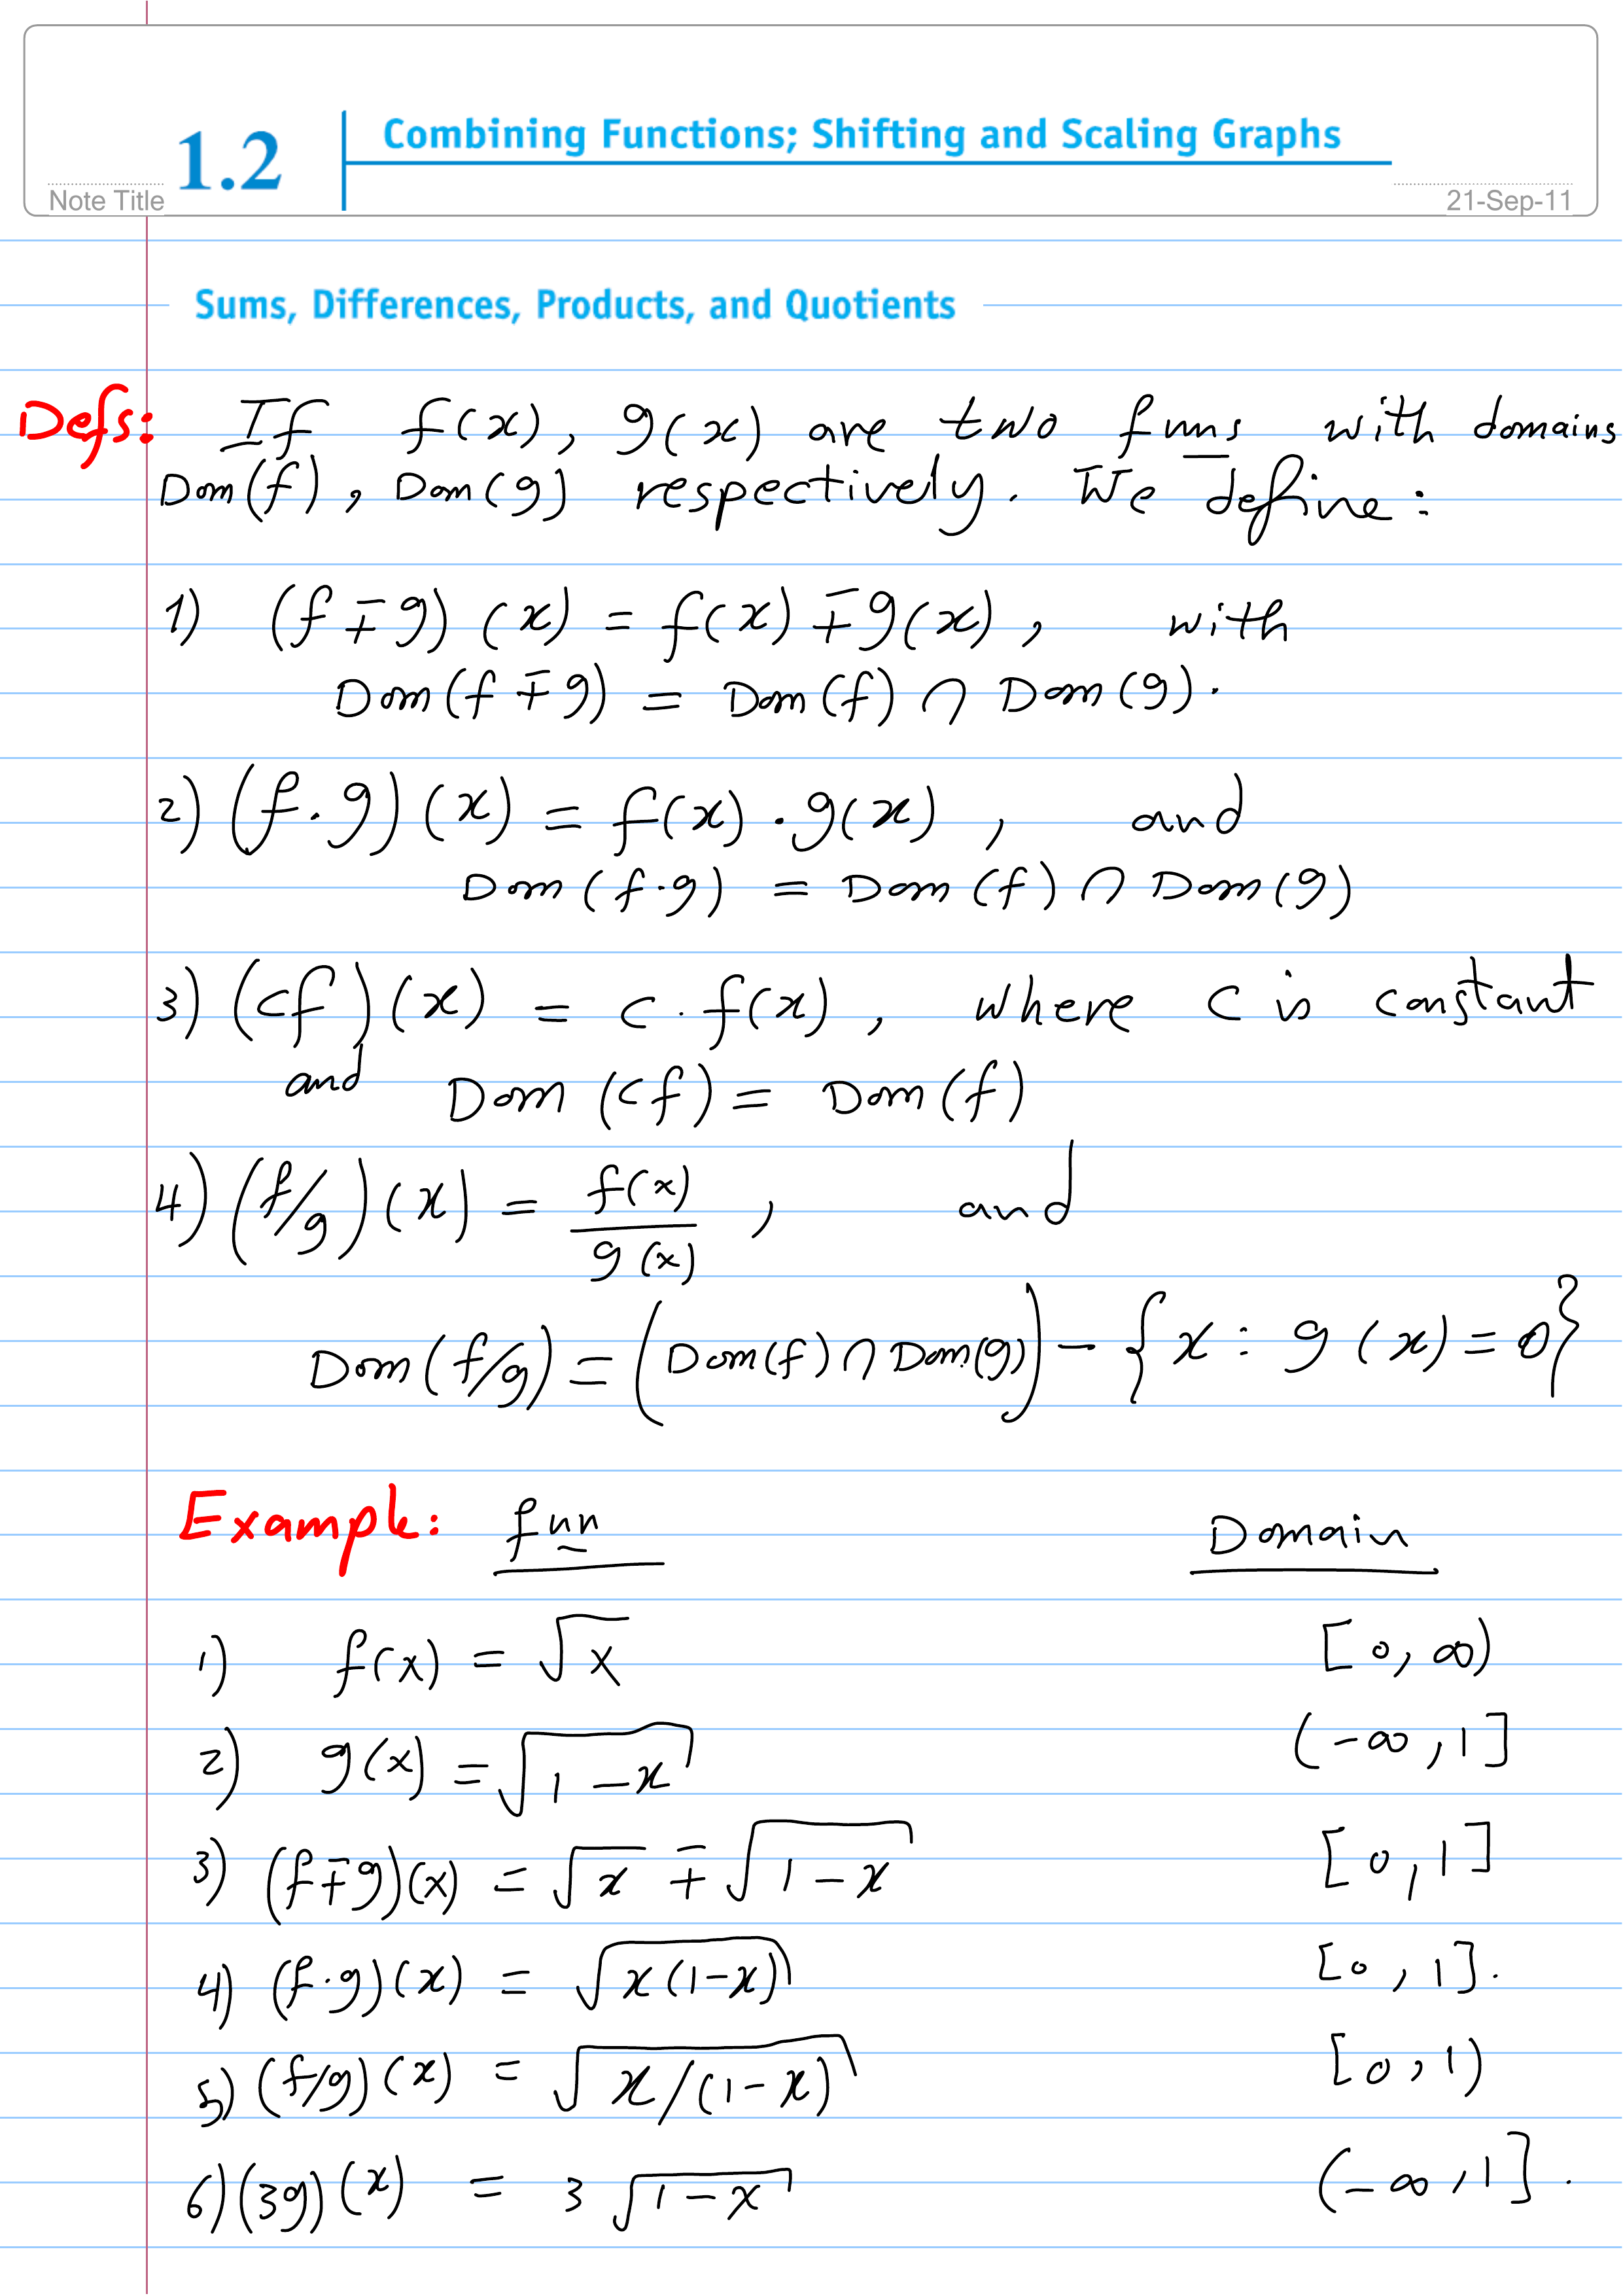 1.2 Combining Functions; Shifting and Scaling Graphs
Note Title 21-Sep-11
Sums, Differences, Products, and Quotients
Defs: If f(x), g(x) are two funs with domains
Dom(f), Dom(g) respectively. We define:
1) (f ∓ g)(x) = f(x) ∓ g(x), with
Dom(f ∓ g) = Dom(f) ∩ Dom(g).
2) (f · g)(x) = f(x) · g(x), and
Dom(f · g) = Dom(f) ∩ Dom(g)
3) (cf)(x) = c · f(x), where c is constant
and Dom(cf) = Dom(f)
4) (f/g)(x) = f(x)/g(x), and
Dom(f/g) = (Dom(f) ∩ Dom(g)) − {x : g(x) = 0}
Example: fun Domain
1) f(x) = √x [0, ∞)
2) g(x) = √(1 − x) (−∞, 1]
3) (f ∓ g)(x) = √x ∓ √(1 − x) [0, 1]
4) (f · g)(x) = √(x(1−x)) [0, 1].
5) (f/g)(x) = √(x/(1−x)) [0, 1)
6) (3g)(x) = 3√(1−x) (−∞, 1].